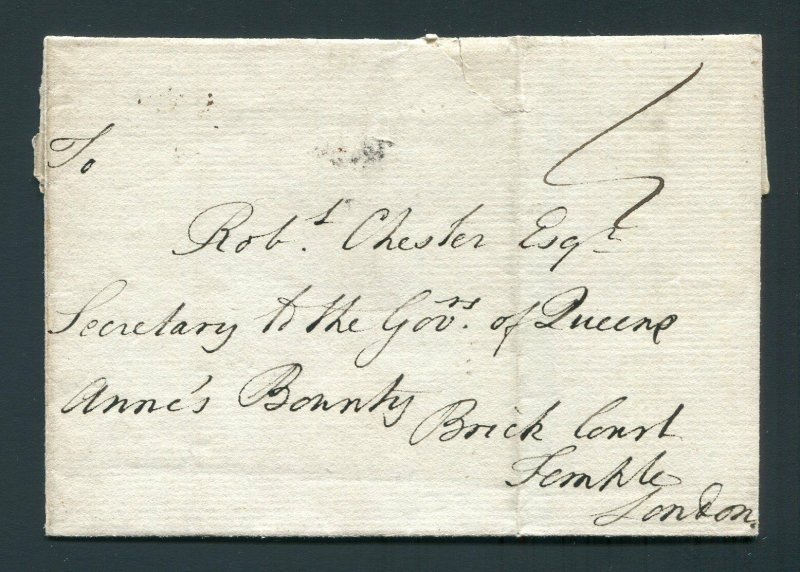 To
Rob.t Chester Esq.r
Secretary to the Gov.rs of Queens
Anne's Bounty
Brick Court
Temple
London.